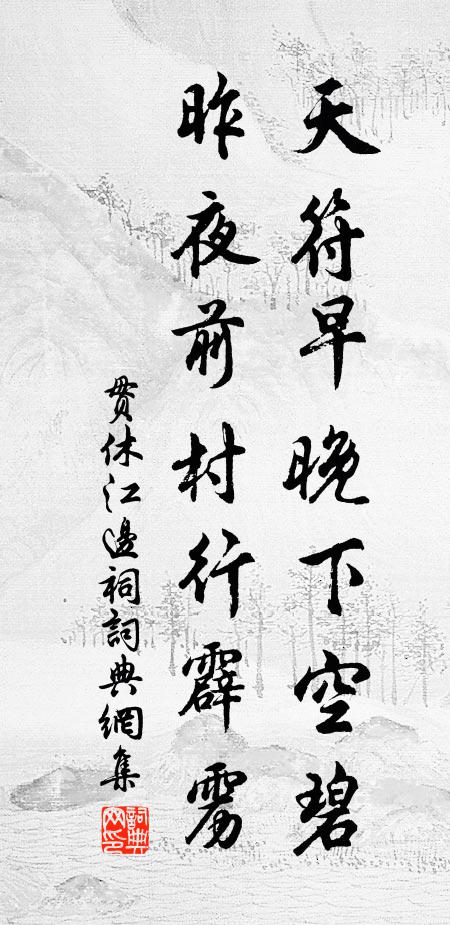 天符早晚下空碧
昨夜前村行霹雳
貫休江邊祠詞典網集
詞典
网印